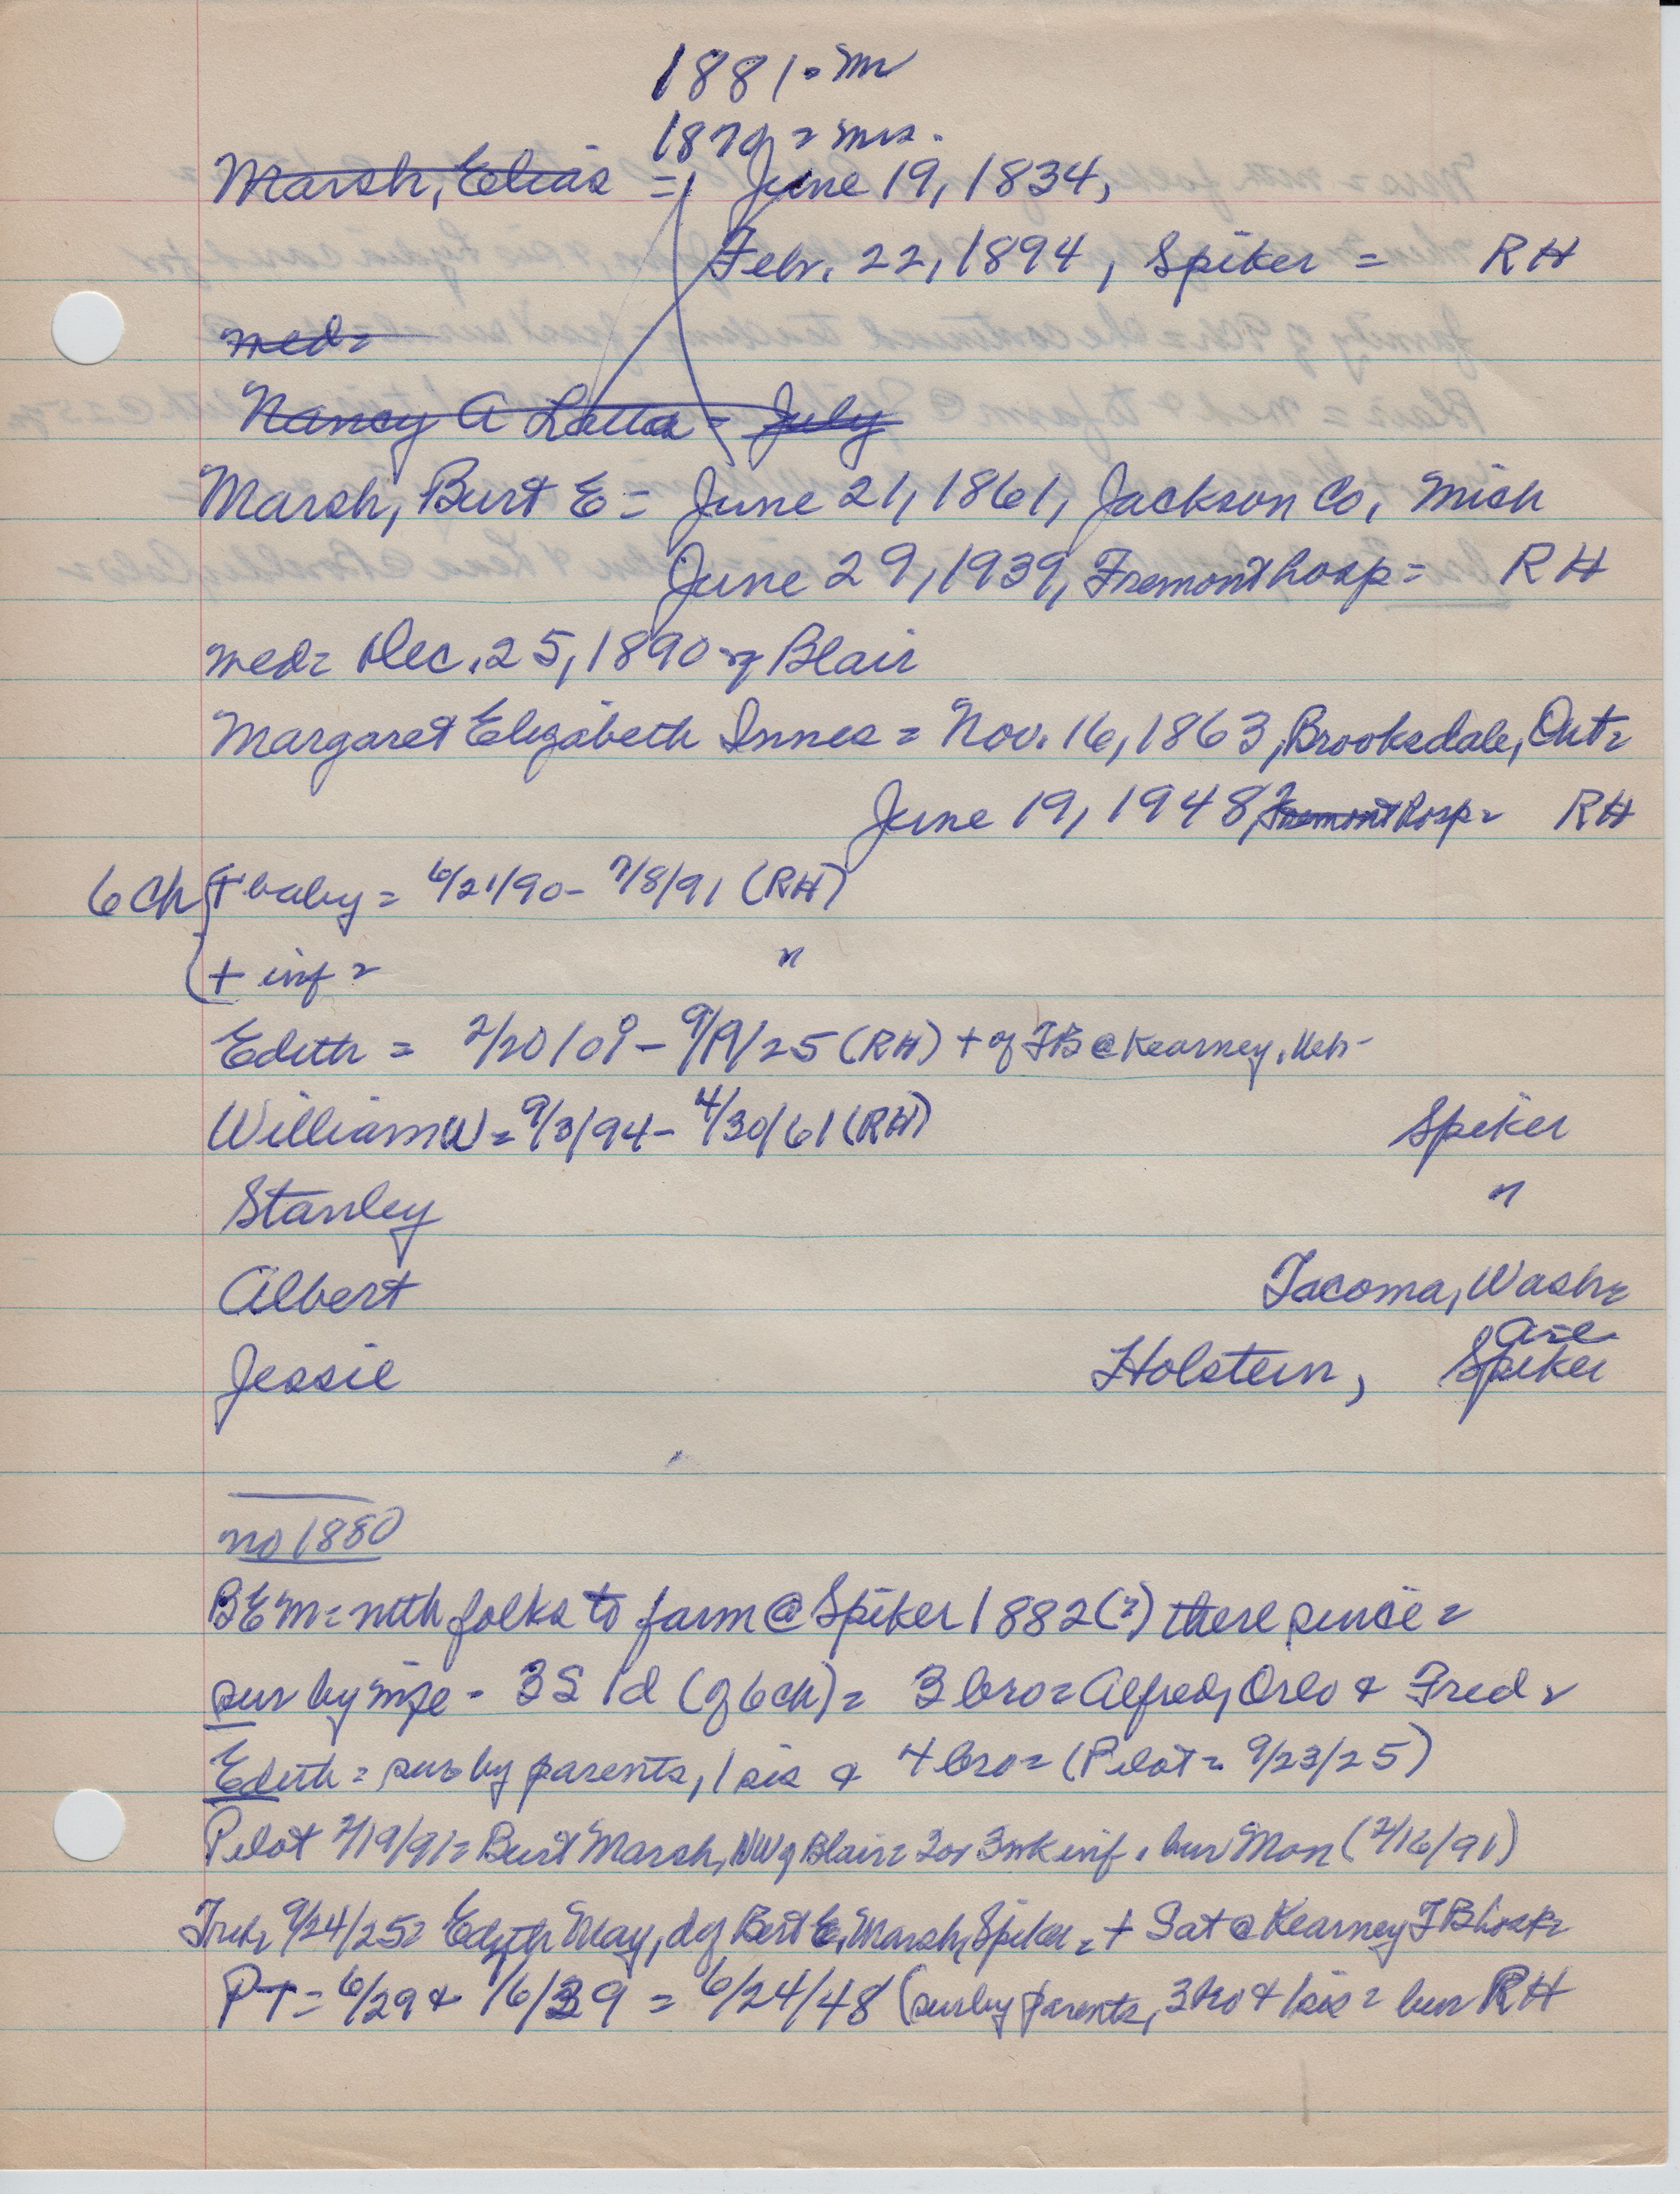 1881 = Mr
1870 = Mrs.
Marsh, Elias = June 19, 1834,
Febr. 22, 1894, Spiker = RH
med =
Nancy A Latta = July
Marsh, Burt E = June 21, 1861, Jackson Co, Mich
June 29, 1939, Fremont hosp = RH
med = Dec. 25, 1890 of Blair
Margaret Elizabeth Innes = Nov. 16, 1863, Brooksdale, Ont =
June 19, 1948, Fremont hosp = RH
6 ch + baby = 6/21/90 - 7/8/91 (RH)
+ inf = "
Edith = 2/20/09 - 9/19/25 (RH) + of TB @ Kearney, Neb -
William W = 9/3/94 - 4/30/61 (RH) Spiker
Stanley "
Albert Tacoma, Wash =
Jessie Holstein, Spiker
no 1880
BEM = with folks to farm @ Spiker 1882 (?) there since =
sur by wife - 3S 1d (of 6 ch) = 3 bro = Alfred, Orlo & Fred =
Edith = sur by parents, 1 sis & 4 bro = (Pilot = 9/23/25)
Pilot 2/19/91 = Burt Marsh, NW of Blair = 2 or 3 wk inf. bur Mon (2/16/91)
Trib, 9/24/25 = Edith May, d of Bert E. Marsh, Spiker = + Sat @ Kearney TB hosp =
PT = 6/29 & 7/6/39 = 6/24/48 (sur by parents, 3 bro & 1 sis = bur RH